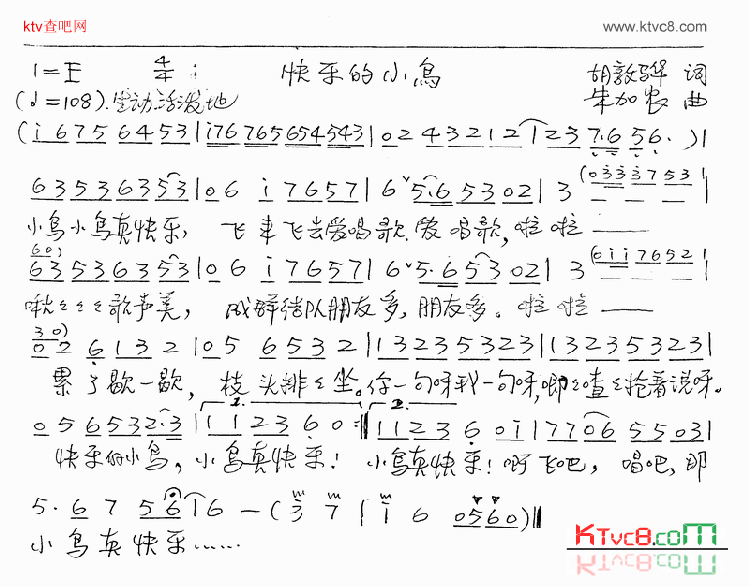 ktv查吧网
www.ktvc8.com
1=E 4/4 快乐的小鸟 胡敦骅 词
(♩=108) 生动活泼地 朱加农 曲
(i 6 7 5 6 4 5 3 | i 7 6 7 6 5 6 5 4 5 4 3 | 0 2 4 3 2 1 2 1 2 3 7·6 5 6 · ) |
6 3 5 3 6 3 5 3 | 0 6 i 7 6 5 7 | 6 ˅ 5·6 5 3 0 2 | 3 — — — (0 3 3 3 7 5 3 |
小鸟小鸟真快乐, 飞来飞去爱唱歌,爱唱歌,啦啦——
6 0)
6 3 5 3 6 3 5 3 | 0 6 i 7 6 5 7 | 6 ˅ 5·6 5 3 0 2 | 3 — — — (0 i i 7 6 5 2 |
啾々々々歌声美, 成群结队朋友多,朋友多。啦啦——
3 0)
0 2 6 1 3 2 | 0 5 6 5 3 2 | 1 3 2 3 5 3 2 3 | 1 3 2 3 5 3 2 3 |
累了歇一歇, 枝头排々坐。你一句呀我一句呀,唧々喳々抢着说呀。
1. 2.
0 5 6 5 3 2·3 | 1 1 2 3 6 0 :‖ 1 1 2 3 6 0 i | 7 7 0 6 5 5 0 3 |
快乐的小鸟,小鸟真快乐! 小鸟真快乐!啊飞吧,唱吧,那
5 · 6 7 5 6 | 6 — (3 7 | i 6 0 5 6 0) ‖
小鸟真快乐……
KTvc8.com